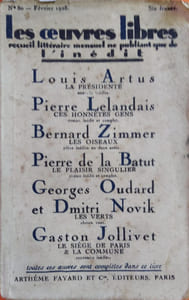 N° 80 — Février 1928. Six francs.
les œuvres libres
recueil littéraire mensuel ne publiant que de
l'inédit
Louis Artus
LA PRÉSIDENTE
Pierre Lelandais
CES HONNÊTES GENS
roman inédit et complet.
Bernard Zimmer
LES OISEAUX
pièce inédite en deux actes
Pierre de la Batut
LE PLAISIR SINGULIER
roman inédit et complet.
Georges Oudard
et Dmitri Novik
LES VERTS
Gaston Jollivet
LE SIÈGE DE PARIS
& LA COMMUNE
souvenirs inédits.
toutes ces œuvres sont complètes dans ce livre
ARTHÈME FAYARD ET Cie, ÉDITEURS, PARIS